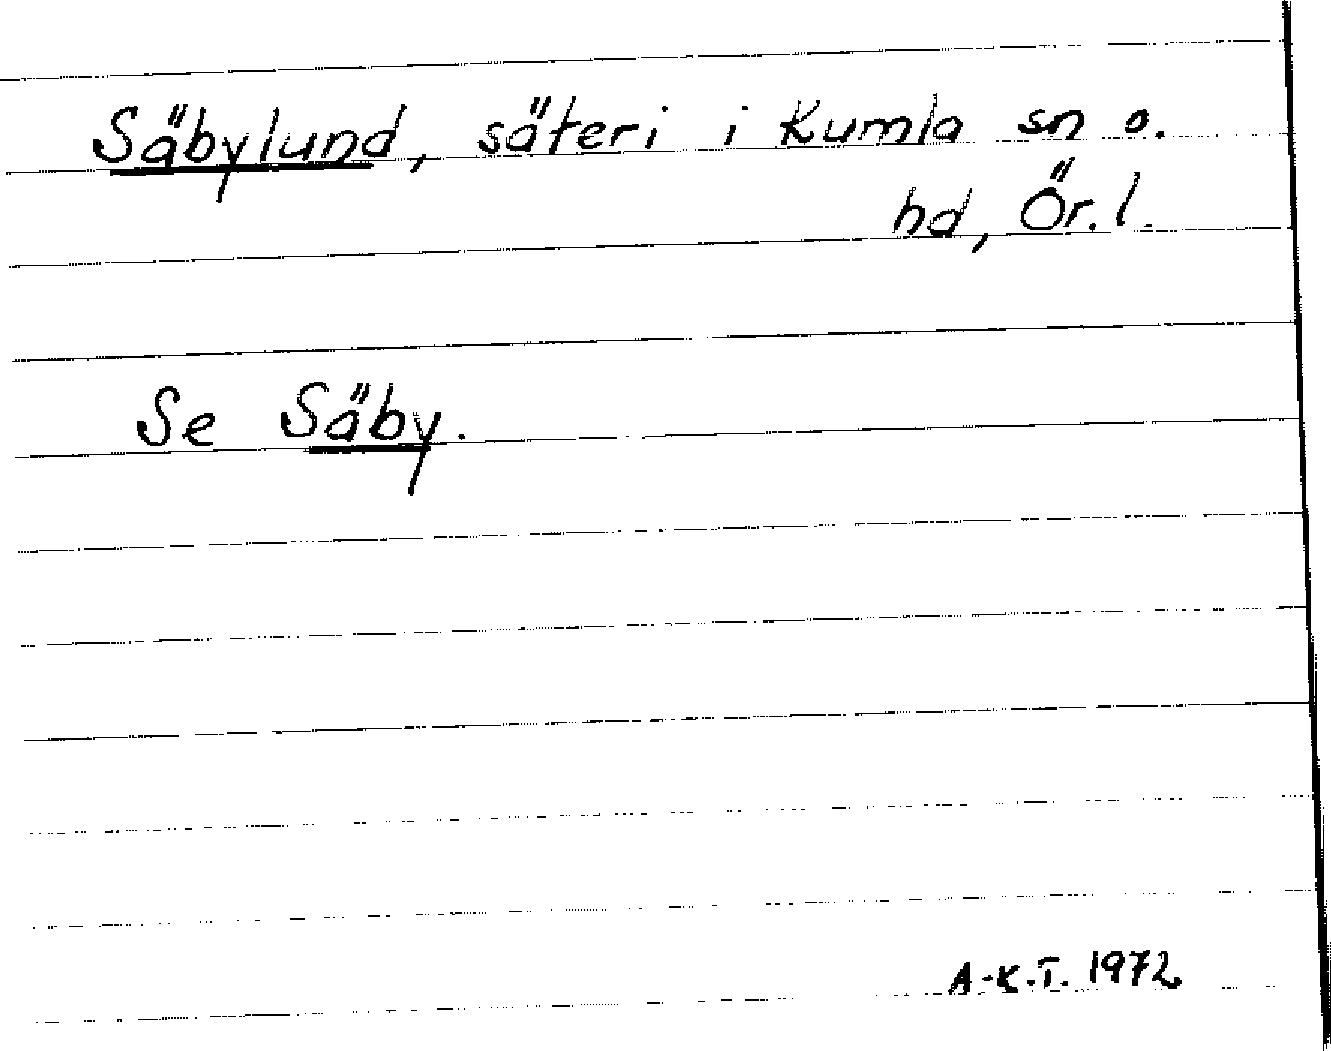 Säbylund, säteri i Kumla sn o.
hd, Ör.l.
Se Säby.
A-K.T. 1972